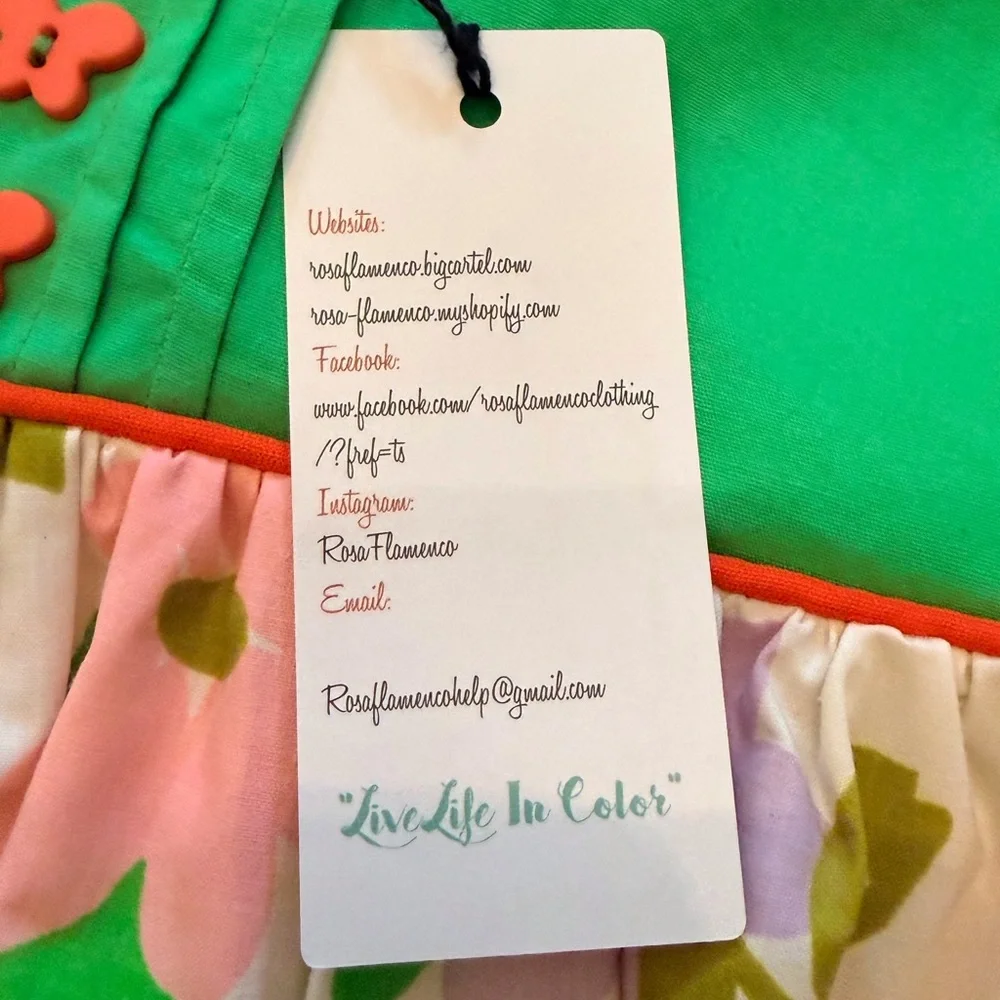 Websites:
rosaflamenco.bigcartel.com
rosa-flamenco.myshopify.com
Facebook:
www.facebook.com/rosaflamencoclothing
/?fref=ts
Instagram:
RosaFlamenco
Email:
Rosaflamencohelp@gmail.com
"Live Life In Color"